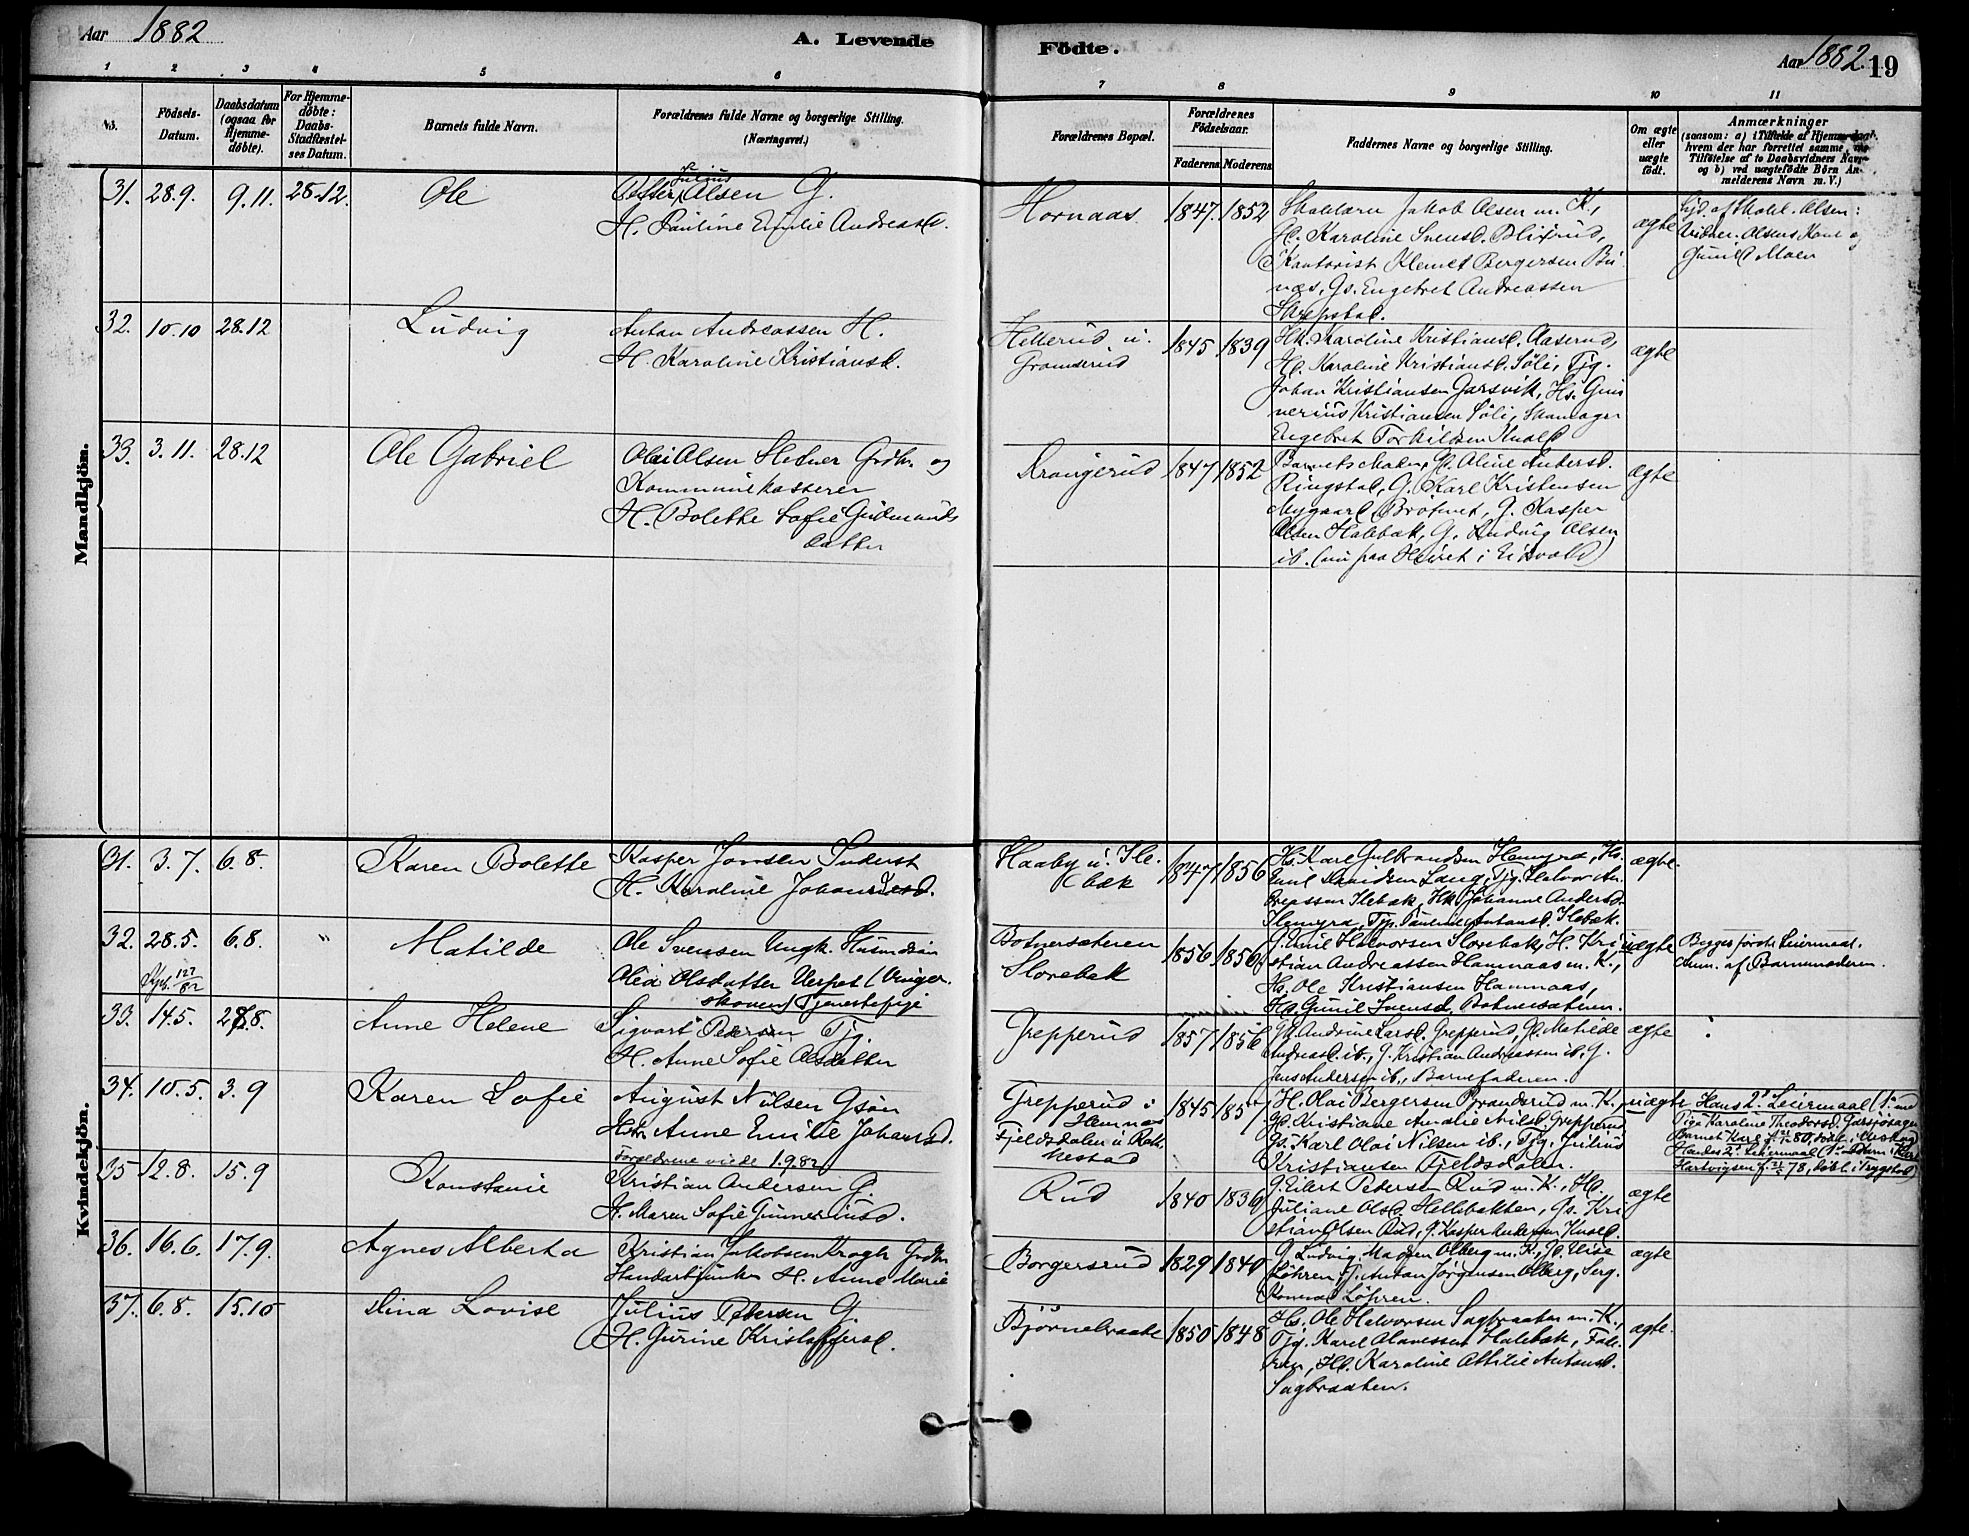 Aar 1882
A. Levende
Födte.
Aar 1882. 19
1 2 3 4 5 6
7 8 9 10 11
No.
Födsels-
Datum.
Daabsdatum
(ogsaa for
Hjemme-
döbte).
For Hjemme-
döbte:
Daabs-
Stadfæstel-
ses Datum.
Barnets fulde Navn.
Forældrenes fulde Navne og borgerlige Stilling.
(Næringsvei.)
Forældrenes Bopæl.
Forældrenes
Födselsaar.
Faderens. Moderens.
Faddernes Navne og borgerlige Stilling.
Om ægte
eller
uægte
födt.
Anmærkninger
(saasom: a) i Tilfælde af Hjemmedaab,
hvem der har forrettet samme, med
Tilföielse af to Daabsvidners Navne
og b) ved uægtefödte Börn An-
melderens Navn m. V.)
Mandkjön.
31. 28.9. 9.11. 28.12. Ole
Julius
Petter Olsen G.
H. Pauline Emilie Andreasd.
Hornaas 1847. 1852
Skolelærer Jakob Olsen m. K.,
H. Karoline Svensd. Blixrud,
Kontorist Klemet Bergersen Bu
næs, Gs. Engebret Andreassen
Skrepstad.
ægte
af Skolel. Olsen:
Vidner. Olsens Kone og
Gunild Moen
32. 10.10 28.12 Ludvig
Anton Andreassen H.
H. Karoline Kristiansd.
Hellerud u.
Gramserud
1845 1839
Hk. Karoline Kristiansd. Aaserud,
H. Karoline Kristiansd. Søli, Tjg.
Johan Kristiansen Garsvik, Hs. Gun
nerius Kristiansen Søli, Skomager
Engebret Torkildsen
ægte
33. 3.11. 28.12 Ole Gabriel
Olai Olsen Hedner Grdbr. og
Kommunekasserer
H. Bolette Sofie Gudmunds
datter
Krangerud 1847 1852
Barnets Moder, G. Oline Andersd.
Ringstad, G. Karl Kristensen
Nygaard Brotnet, G. Kasper
Olsen Holebæk, G. Ludvig Olsen
ib. (nu paa Huret i Eidsvold)
ægte
Kvindekjön.
31. 3.7. 6.8. Karen Bolette
Kasper Jonsen Inderst
H. Karoline Johannesd.
Haaby u. Ile-
bæk
1847 1856
Hs. Karl Gulbrandsen Hemyra, Hs.
Emil Lang, Tjg. Halvor An
dreassen Ilebæk, Hk. Johanne Andersd.
Hemyra, Tjp. Pauline Antonsd. Ilebæk.
ægte.
32. 28.5. 6.8. " Matilde
Ole Svensen Ungk. Husmdsøn
Olea Olsdatter Verpet (Vinger-
skoven) Tjenestepige
127
82
Botnersæteren
Slorebæk
1856 1856
Emil Halvorsen Slorebæk, H. Kri
stian Andreassen Hamnaas m. K.,
Hs. Ole Kristiansen Hamnaas,
H. Gunil Svensd. Botnersæteren.
uægte
Begges første Leiermaal.
Anm. af Barnemoderen.
33. 14.5. 27.8. Anne Helene
Sigvart Pedersen Tj.
H. Anne Sofie Olsdatter
Grepperud 1857 1856
G. Andrine Larsd. Grepperud, G. Matilde
Andreasd. ib., G. Kristian Andreassen ib., G.
Jens Andersen ib., Barnefaderen.
ægte
34. 10.5. 3.9 Karen Sofie
August Nilsen Gsøn
Anne Emilie Johansd.
Forældrene viede 1.9.82
Grepperud i
Hemnæs
Fjeldsdalen i Rak-
kestad
1845 1857
H. Olai Bergersen Branderud m. K.,
G. Kristiane Amalie Nilsd. Grepperud
Gs. Karl Olai Nilsen ib., Tjg. Julius
Kristiansen Fjeldsdalen.
uægte
Hans 2. Leiermaal (1. med
Pige Karoline Theodorsd. Gaasjøsagen
Barnet Karl f. 80, døbt i
Hendes 2. Leiermaal (1.
Hartvigsen f. 78, døbt i Trygstad)
35 12.8. 15.9 Konstanse
Kristian Andersen G.
H. Maren Sofie Gunneriusd.
Rud 1840 1839
G. Eilert Pedersen Rud m. K., H.
Juliane Olsd. Hellebakken, Gs. Kri
stian Olsen Rud, G. Kasper Andersen
ægte
36. 16.6. 17.9. Agnes Alberta
Kristian Jakobsen Krogh Grdbr.
Standartjunker H. Anne Marie
Borgersrud 1829 1840
G. Ludvig Madsen Olberg m. K., G. Elise
Løhren, G. Anton Jørgensen Olberg, Serg.
Konrad Løhren.
ægte
37. 6.8. 15.10 Dina Lovise
Julius Petersen G.
H. Gurine Kristoffersd.
Bjørnebraate 1850 1848
Hs. Ole Halvorsen Sagbraaten m. K.,
Tjg. Karl Olavessen Holebæk, Fade-
ren, H. Karoline Attilie Antonsd.
Sagbraaten.
ægte.